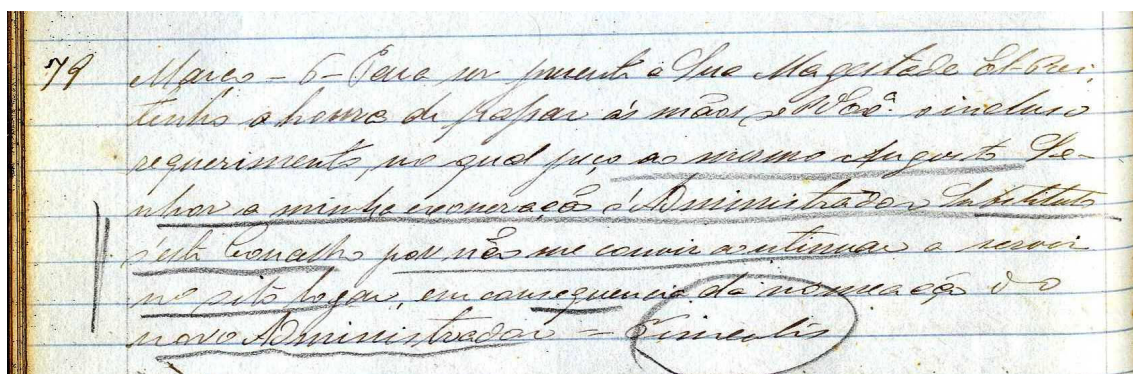 79 Março - 6 - Para ser presente a Sua Magestade El-Rei,
tenho a honra de passar ás mãos de V Exª o incluso
requerimento, no qual peço ao mesmo Augusto Se-
nhor a minha exoneração d'Administrador Substituto
d'este Concelho por não me convir continuar a servir
no dito logar, em consequencia da nomeação do
novo Administrador =